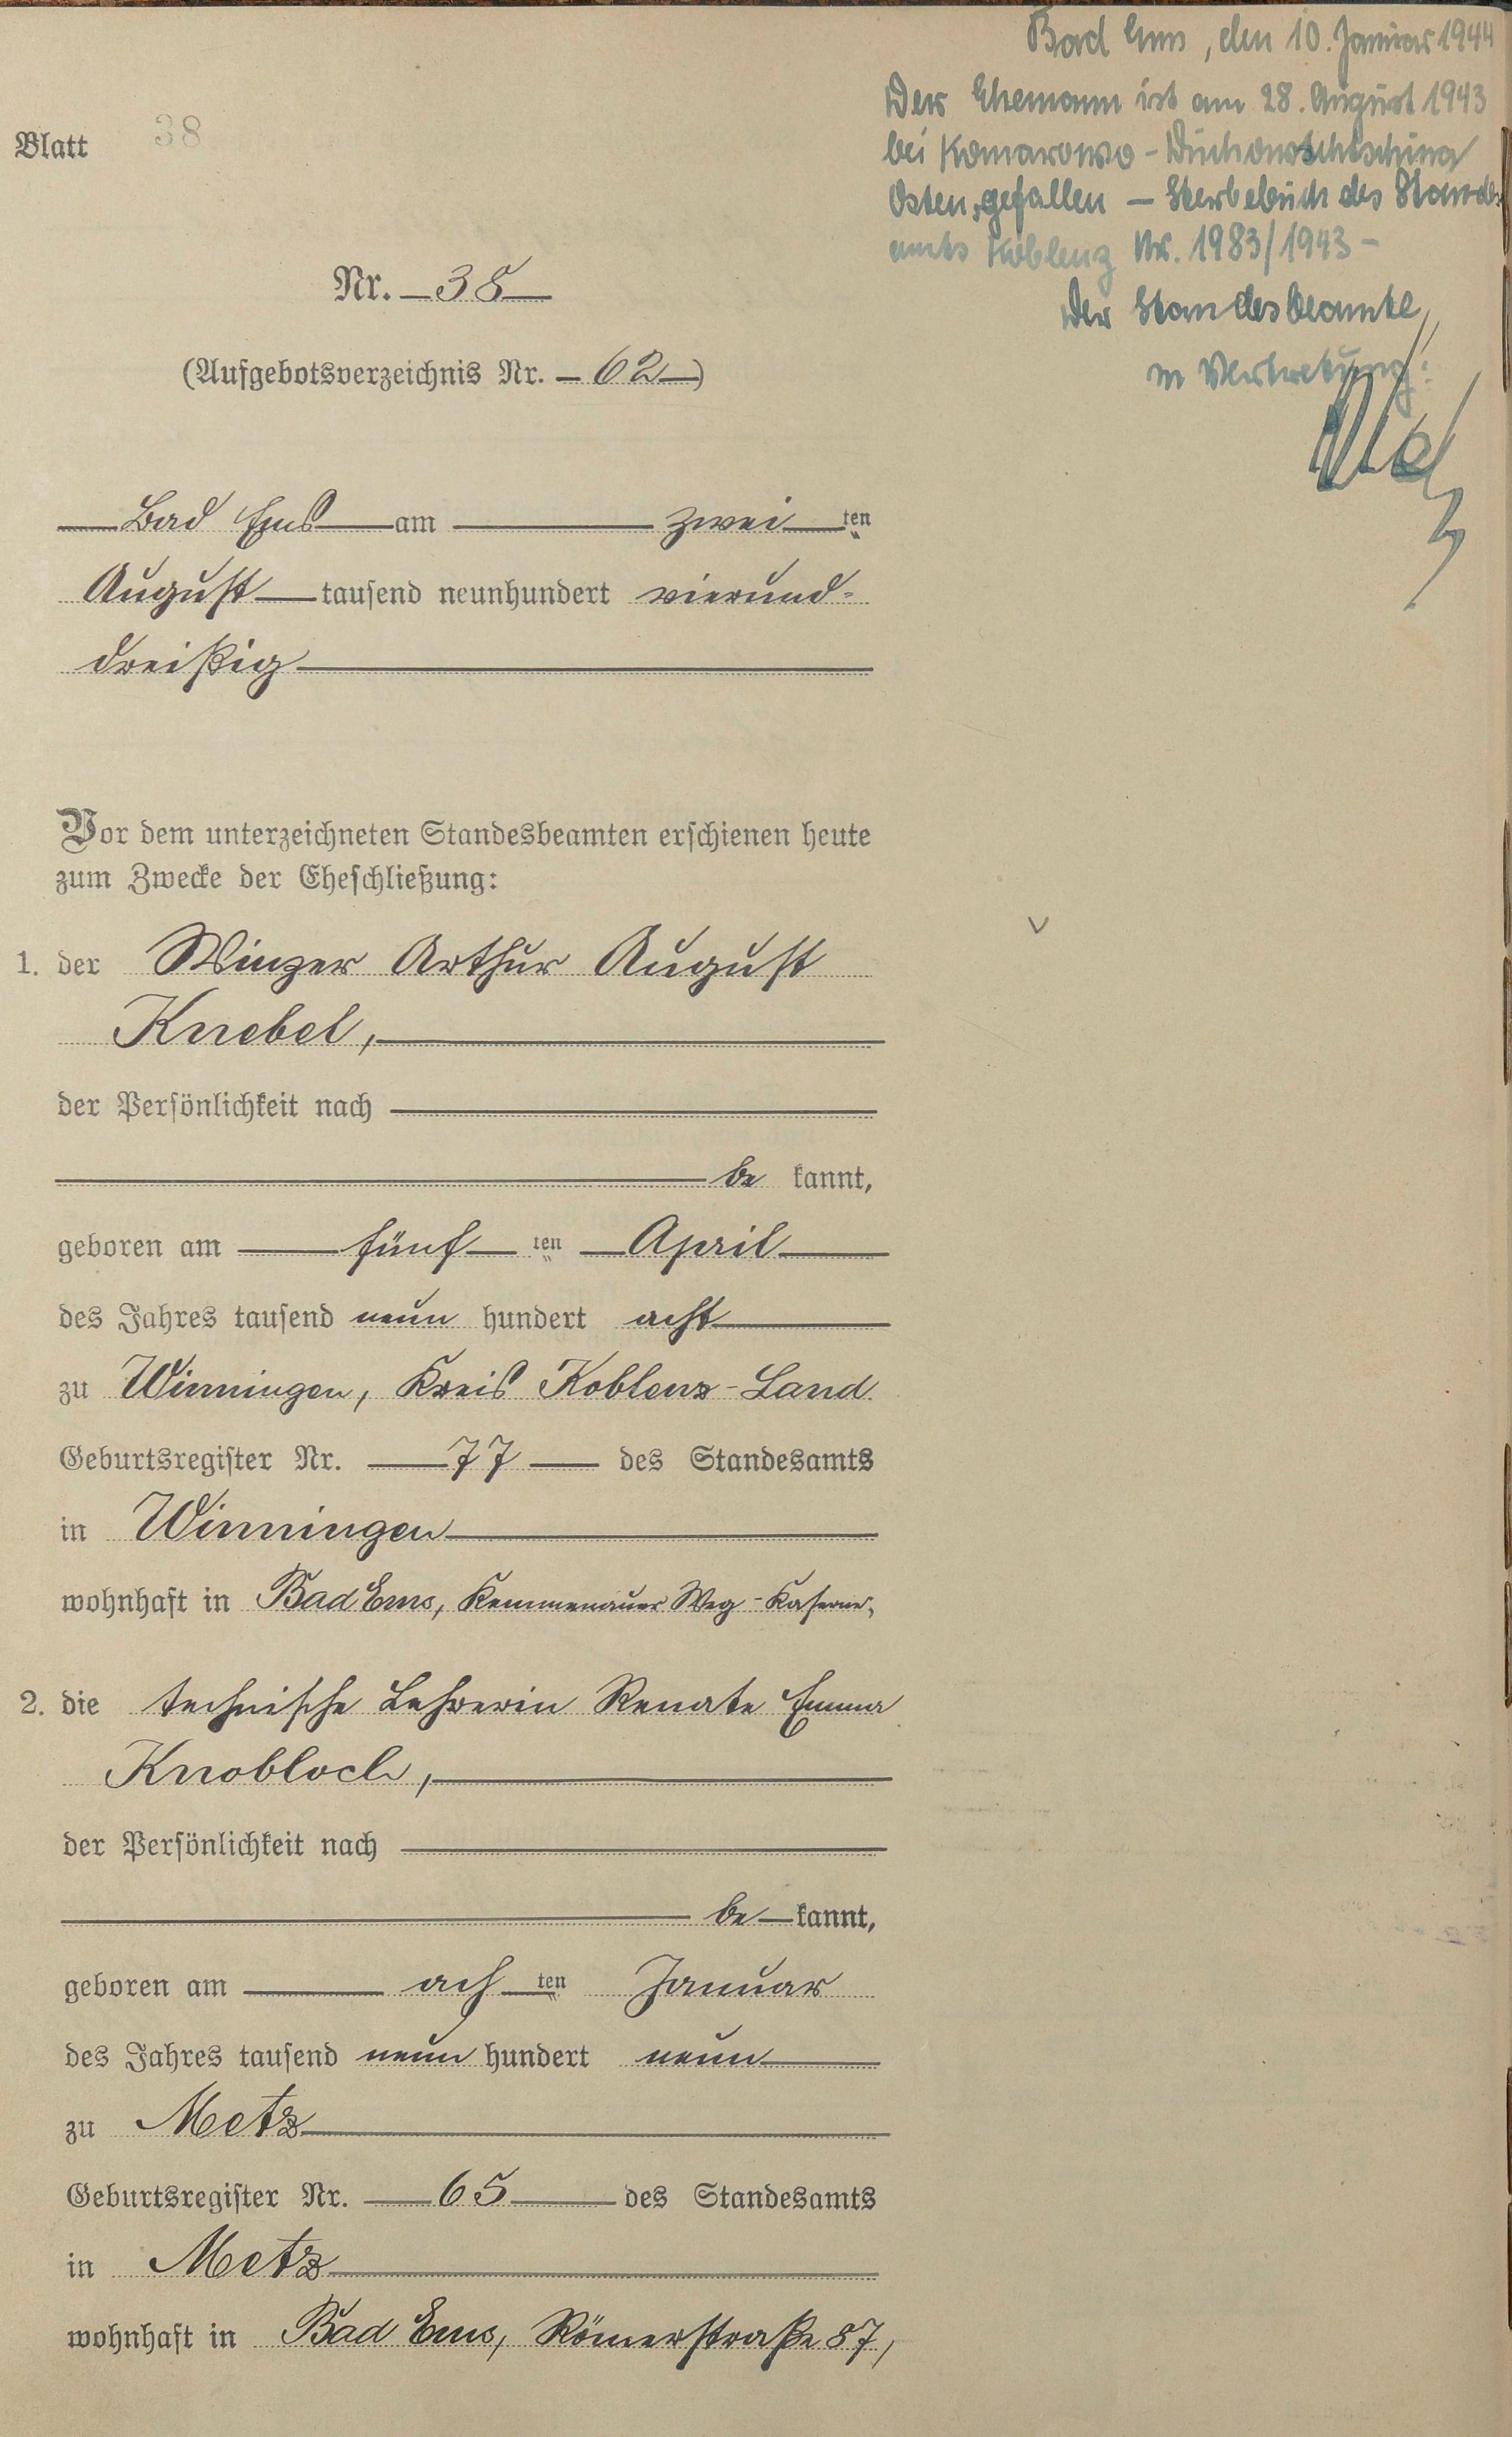 Bad Ems, den 10. Januar 1944
Der Ehemann ist am 28. August 1943
bei Komarowo - Duchowschtschina
Osten, gefallen — Sterbebuch des Standes
amts Koblenz Nr. 1983/1943 -
Der Standesbeamte
In Vertretung:
Blatt 38
Nr. 38
(Aufgebotsverzeichnis Nr. 62)
Bad Ems am zwei ten
August tausend neunhundert vierund-
dreißig
Vor dem unterzeichneten Standesbeamten erschienen heute
zum Zwecke der Eheschließung:
1. der Winzer Arthur August
Knebel,
der Persönlichkeit nach
be kannt,
geboren am fünf ten April
des Jahres tausend neun hundert acht
zu Winningen, Kreis Koblenz-Land
Geburtsregister Nr. 77 des Standesamts
in Winningen
wohnhaft in Bad Ems, Kemmenauer Weg - Kaserne,
2. die technische Lehrerin Renate Emma
Knobloch,
der Persönlichkeit nach
be kannt,
geboren am ach ten Januar
des Jahres tausend neun hundert neun
zu Metz
Geburtsregister Nr. 65 des Standesamts
in Metz
wohnhaft in Bad Ems, Römerstraße 87,